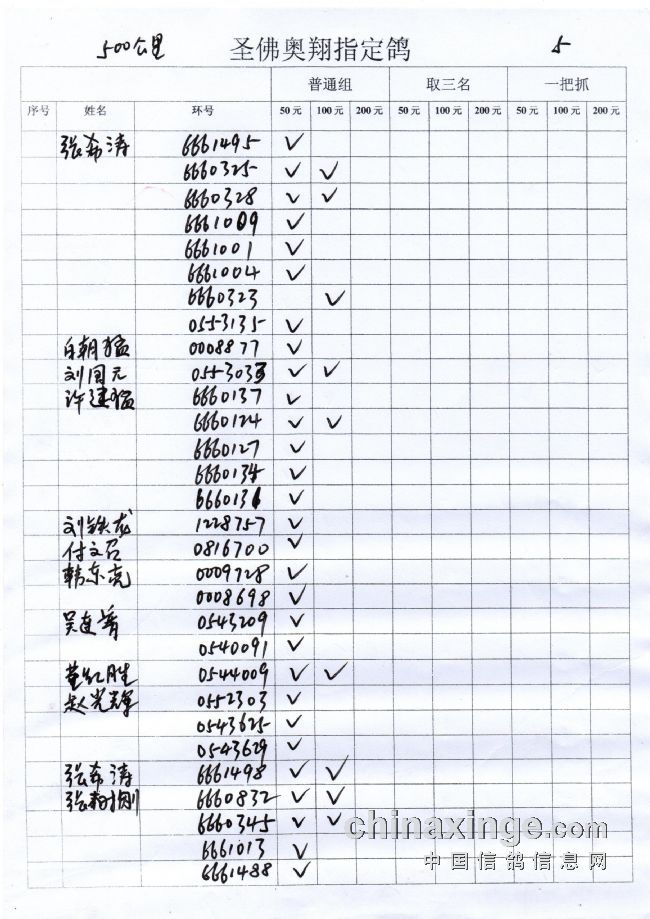 500公里 圣佛奥翔指定鸽 5
普通组 取三名 一把抓
序号 姓名 环号 50元 100元 200元 50元 100元 200元 50元 100元 200元
张希涛 6661495 ✓
6660325 ✓ ✓
6660328 ✓ ✓
6661009 ✓
6661001 ✓
6661004 ✓
6660323 ✓
0553135 ✓
白朝猛 0008877 ✓
刘国元 0553033 ✓ ✓
许建猛 6660137 ✓
6660124 ✓ ✓
6660127 ✓
6660134 ✓
6660136 ✓
刘铁龙 1228757 ✓
付文召 0816700 ✓
韩东亮 0009728 ✓
0008698 ✓
吴连 0543209 ✓
0540091 ✓
董红胜 0544009 ✓ ✓
赵光辉 0552303 ✓
0543625 ✓
0543629 ✓
张希涛 6661498 ✓ ✓
张 刚 6660832 ✓ ✓
6660345 ✓ ✓
chinaxinge.com
6661013 ✓
中国信鸽信息网
6661488 ✓